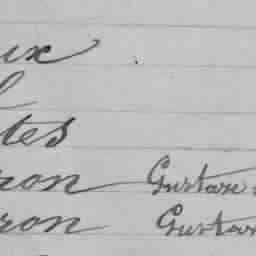 ux
l
tes
ron Gustave
ron Gustav